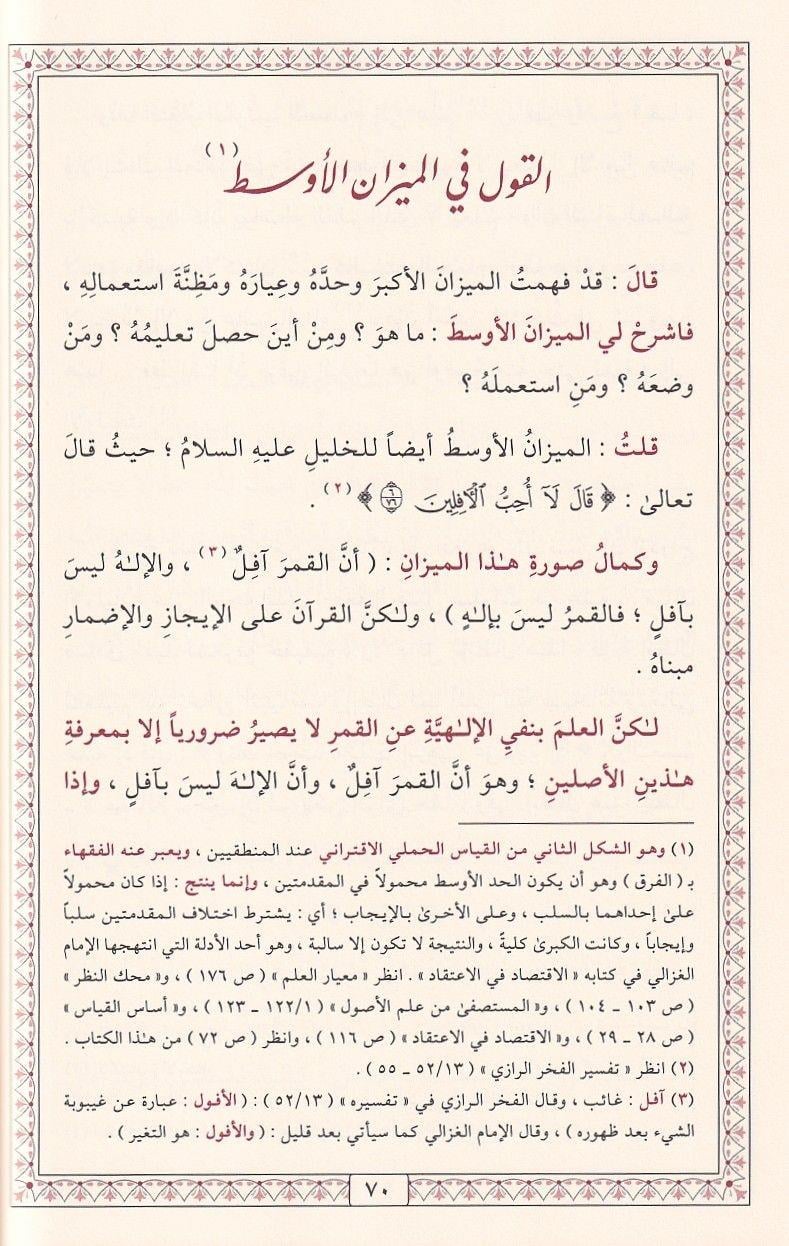 القول في الميزان الأوسط (١)
قالَ : قدْ فهمتُ الميزانَ الأكبرَ وحدَّهُ وعِيارَهُ ومَظِنَّةَ استعمالِهِ ،
فاشرحْ لي الميزانَ الأوسطَ : ما هوَ ؟ ومِنْ أينَ حصلَ تعليمُهُ ؟ ومَنْ
وضعَهُ ؟ ومَنِ استعملَهُ ؟
قلتُ : الميزانُ الأوسطُ أيضاً للخليلِ عليهِ السلامُ ؛ حيثُ قالَ
تعالىٰ : ﴿ قَالَ لَآ أُحِبُّ ٱلْآفِلِينَ ٦ ٧٦ ﴾ (٢) .
وكمالُ صورةِ هـٰذا الميزانِ : ( أنَّ القمرَ آفِلٌ (٣) ، والإلـٰهُ ليسَ
بآفلٍ ؛ فالقمرُ ليسَ بإلـٰهٍ ) ، ولـٰكنَّ القرآنَ على الإيجازِ والإضمارِ
مبناهُ .
لـٰكنَّ العلمَ بنفيِ الإلـٰهيَّةِ عنِ القمرِ لا يصيرُ ضرورياً إلا بمعرفةِ
هـٰذينِ الأصلينِ ؛ وهوَ أنَّ القمرَ آفِلٌ ، وأنَّ الإلـٰهَ ليسَ بآفلٍ ، وإذا
(١) وهو الشكل الثاني من القياس الحملي الاقتراني عند المنطقيين ، ويعبر عنه الفقهاء
بـ ( الفرق ) وهو أن يكون الحد الأوسط محمولاً في المقدمتين ، وإنما ينتج : إذا كان محمولاً
علىٰ إحداهما بالسلب ، وعلى الأخرىٰ بالإيجاب ؛ أي : يشترط اختلاف المقدمتين سلباً
وإيجاباً ، وكانت الكبرىٰ كليةً ، والنتيجة لا تكون إلا سالبة ، وهو أحد الأدلة التي انتهجها الإمام
الغزالي في كتابه « الاقتصاد في الاعتقاد » . انظر « معيار العلم » ( ص ١٧٦ ) ، و« محك النظر »
( ص ١٠٣ ـ ١٠٤ ) ، و« المستصفىٰ من علم الأصول » ( ١/ ١٢٢ ـ ١٢٣ ) ، و« أساس القياس »
( ص ٢٨ ـ ٢٩ ) ، و« الاقتصاد في الاعتقاد » ( ص ١١٦ ) ، وانظر ( ص ٧٢ ) من هـٰذا الكتاب .
(٢) انظر « تفسير الفخر الرازي » ( ١٣/ ٥٢ ـ ٥٥ ) .
(٣) آفل : غائب ، وقال الفخر الرازي في « تفسيره » ( ١٣/ ٥٢ ) : ( الأفول : عبارة عن غيبوبة
الشيء بعد ظهوره ) ، وقال الإمام الغزالي كما سيأتي بعد قليل : ( والأفول : هو التغير ) .
٧٠